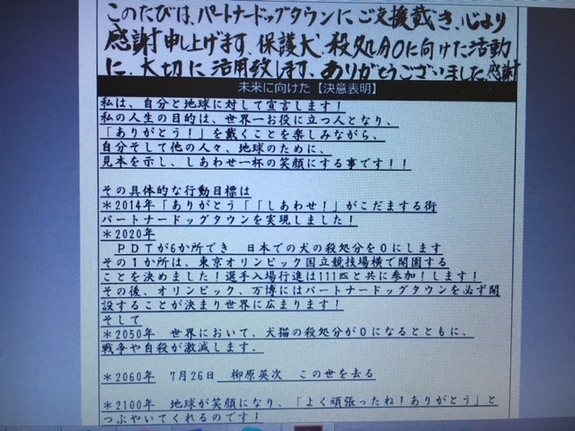 このたびは、パートナードッグタウンにご支援戴き、心より
感謝申し上げます。保護犬、殺処分0に向けた活動
に、大切に活用致します。ありがとうございました。感謝
未来に向けた【決意表明】
私は、自分と地球に対して宣言します！
私の人生の目的は、世界一お役に立つ人となり、
「ありがとう！」を戴くことを楽しみながら、
自分そして他の人々、地球のために、
見本を示し、しあわせ一杯の笑顔にする事です！！
その具体的な行動目標は
＊2014年「ありがとう「「しあわせ！」がこだまする街
パートナードッグタウンを実現しました！
＊2020年
ＰＤＴが6か所でき　日本での犬の殺処分を０にします
その１か所は、東京オリンピック国立競技場横で開園する
ことを決めました！選手入場行進は111匹と共に参加！します！
その後、オリンピック、万博にはパートナードッグタウンを必ず開
設することが決まり世界に広まります！
そして
＊2050年　世界において、犬猫の殺処分が０になるとともに、
戦争や自殺が激減します．
＊2060年　7月26日　柳原英次　この世を去る
＊2100年　地球が笑顔になり、「よく頑張ったね！ありがとう」と
つぶやいてくれるのです！